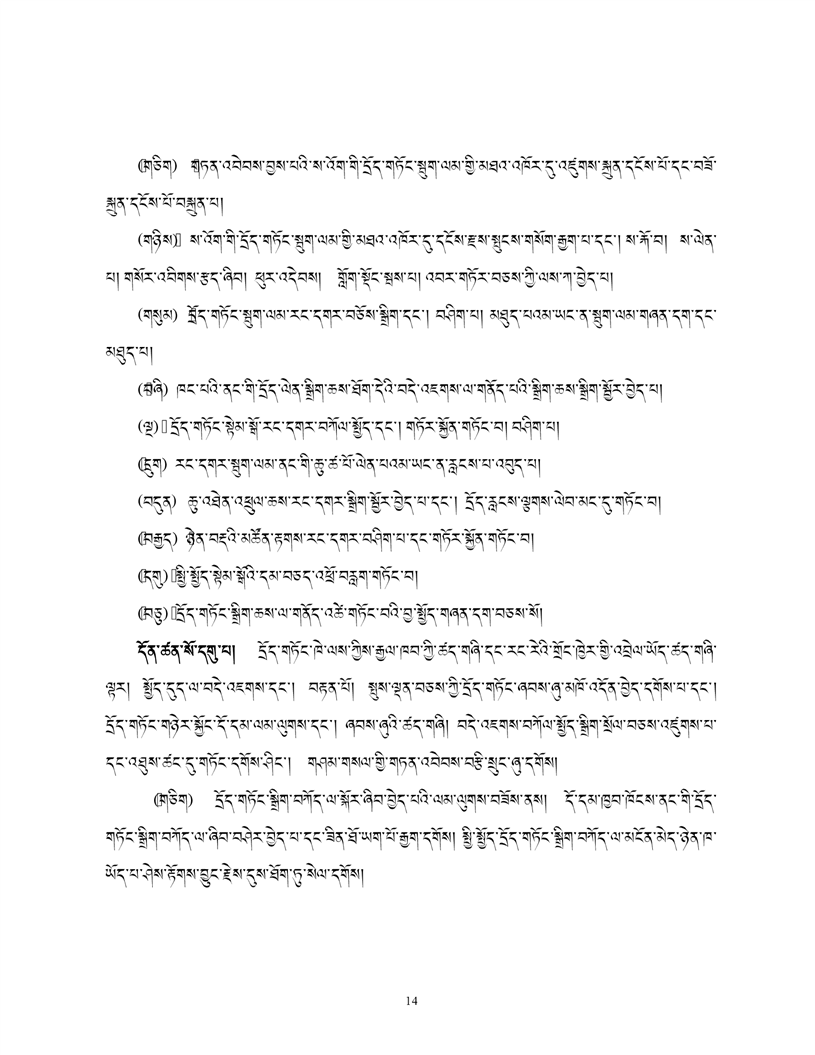 (གཅིག) གཏན་འབེབས་བྱས་པའི་ས་འོག་གི་དྲོད་གཏོང་སྦུག་ལམ་གྱི་མཐའ་འཁོར་དུ་འཛུགས་སྐྲུན་དངོས་པོ་དང་བཟོ་
སྐྲུན་དངོས་པོ་བསྐྲུན་པ།
(གཉིས) ས་འོག་གི་དྲོད་གཏོང་སྦུག་ལམ་གྱི་མཐའ་འཁོར་དུ་དངོས་རྫས་སྤུངས་གསོག་རྒྱག་པ་དང་། ས་རྐོ་བ། ས་ལེན་
པ། གསོར་འབིགས་རྩད་ཞིབ། ཕུར་འདེབས། གློག་སྡོང་སྦས་པ། འབར་གཏོར་བཅས་ཀྱི་ལས་ཀ་བྱེད་པ།
(གསུམ) དྲོད་གཏོང་སྦུག་ལམ་རང་དགར་བཅོས་སྒྲིག་དང་། བཤིག་པ། མཐུད་པའམ་ཡང་ན་སྦུག་ལམ་གཞན་དག་དང་
མཐུད་པ།
(བཞི) ཁང་པའི་ནང་གི་དྲོད་ལེན་སྒྲིག་ཆས་ཐོག་དེའི་བདེ་འཇགས་ལ་གནོད་པའི་སྒྲིག་ཆས་སྒྲིག་སྦྱོར་བྱེད་པ།
(ལྔ) དྲོད་གཏོང་སྟེམ་སྒོ་རང་དགར་བཀོལ་སྤྱོད་དང་། གཏོར་སྐྱོན་གཏོང་བ། བཤིག་པ།
(དྲུག) རང་དགར་སྦུག་ལམ་ནང་གི་ཆུ་ཚ་པོ་ལེན་པའམ་ཡང་ན་རླངས་པ་འབུད་པ།
(བདུན) ཆུ་འཐེན་འཕྲུལ་ཆས་རང་དགར་སྒྲིག་སྦྱོར་བྱེད་པ་དང་། དྲོད་རླངས་ལྕགས་ལེབ་མང་དུ་གཏོང་བ།
(བརྒྱད) ཉེན་བརྡའི་མཚོན་རྟགས་རང་དགར་བཤིག་པ་དང་གཏོར་སྐྱོན་གཏོང་བ།
(དགུ) སྤྱི་སྤྱོད་སྟེམ་སྒོའི་དམ་བཅད་འཕྲོ་བརླག་གཏོང་བ།
(བཅུ) དྲོད་གཏོང་སྒྲིག་ཆས་ལ་གནོད་འཚེ་གཏོང་བའི་བྱ་སྤྱོད་གཞན་དག་བཅས་སོ།
དོན་ཚན་སོ་དགུ་པ། དྲོད་གཏོང་ཁེ་ལས་ཀྱིས་རྒྱལ་ཁབ་ཀྱི་ཚད་གཞི་དང་རང་རེའི་གྲོང་ཁྱེར་གྱི་འབྲེལ་ཡོད་ཚད་གཞི་
ལྟར། སྤྱོད་དུད་ལ་བདེ་འཇགས་དང་། བརྟན་པོ། སྤུས་ལྡན་བཅས་ཀྱི་དྲོད་གཏོང་ཞབས་ཞུ་མཁོ་འདོན་བྱེད་དགོས་པ་དང་།
དྲོད་གཏོང་གཉེར་སྐྱོང་དོ་དམ་ལམ་ལུགས་དང་། ཞབས་ཞུའི་ཚད་གཞི། བདེ་འཇགས་བཀོལ་སྤྱོད་སྒྲིག་སྲོལ་བཅས་འཛུགས་པ་
དང་འཐུས་ཚང་དུ་གཏོང་དགོས་ཤིང་། གཤམ་གསལ་གྱི་གཏན་འབེབས་བརྩི་སྲུང་ཞུ་དགོས།
(གཅིག) དྲོད་གཏོང་སྒྲིག་བཀོད་ལ་སྐོར་ཞིབ་བྱེད་པའི་ལམ་ལུགས་བཟོས་ནས། དོ་དམ་ཁྱབ་ཁོངས་ནང་གི་དྲོད་
གཏོང་སྒྲིག་བཀོད་ལ་ཞིབ་བཤེར་བྱེད་པ་དང་ཟིན་ཐོ་ཡག་པོ་རྒྱག་དགོས། སྤྱི་སྤྱོད་དྲོད་གཏོང་སྒྲིག་བཀོད་ལ་མངོན་མེད་ཉེན་ཁ་
ཡོད་པ་ཤེས་རྟོགས་བྱུང་རྗེས་དུས་ཐོག་ཏུ་སེལ་དགོས།
14